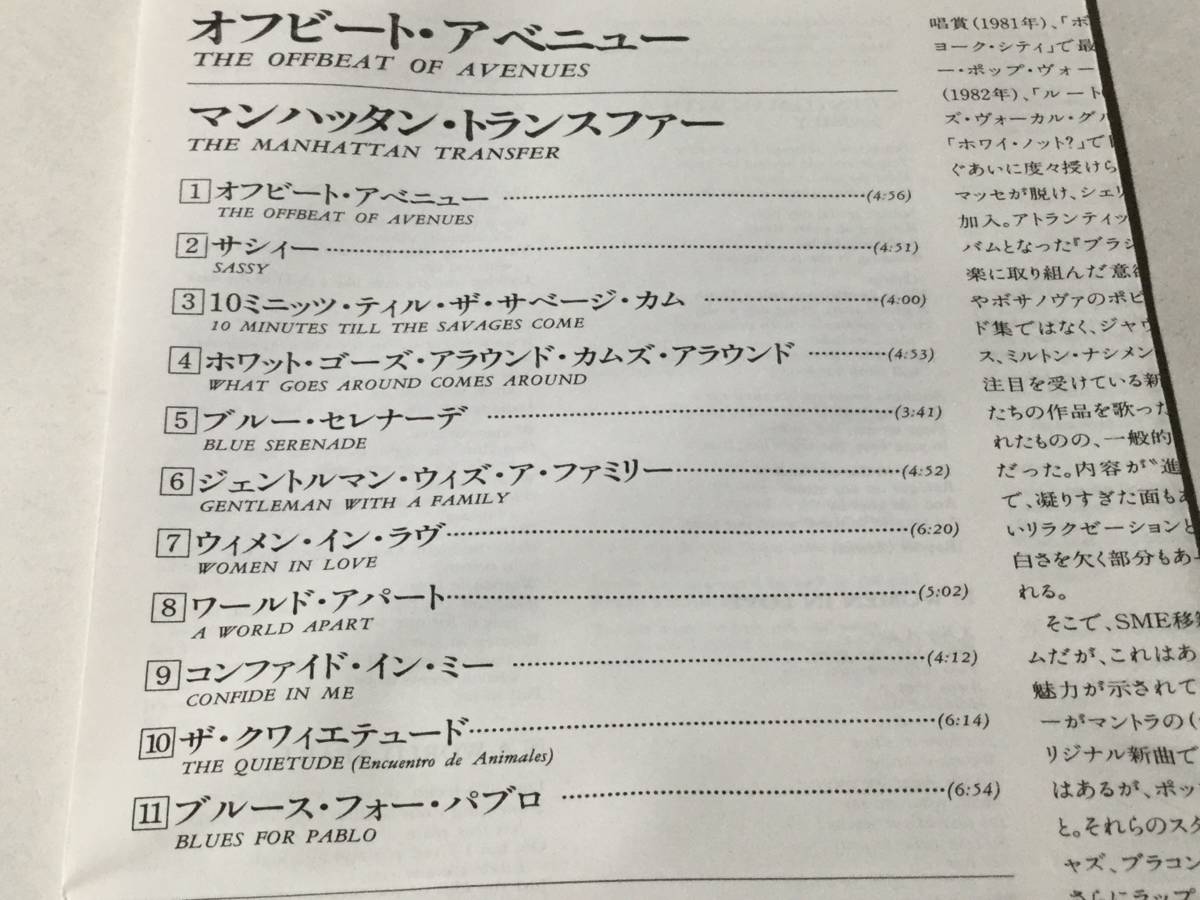 オフビート・アベニュー
THE OFFBEAT OF AVENUES
マンハッタン・トランスファー
THE MANHATTAN TRANSFER
1 オフビート・アベニュー ……(4:56)
THE OFFBEAT OF AVENUES
2 サシィー ……(4:51)
SASSY
3 10ミニッツ・ティル・ザ・サベージ・カム ……(4:00)
10 MINUTES TILL THE SAVAGES COME
4 ホワット・ゴーズ・アラウンド・カムズ・アラウンド ……(4:53)
WHAT GOES AROUND COMES AROUND
5 ブルー・セレナーデ ……(3:41)
BLUE SERENADE
6 ジェントルマン・ウィズ・ア・ファミリー ……(4:52)
GENTLEMAN WITH A FAMILY
7 ウィメン・イン・ラヴ ……(6:20)
WOMEN IN LOVE
8 ワールド・アパート ……(5:02)
A WORLD APART
9 コンファイド・イン・ミー ……(4:12)
CONFIDE IN ME
10 ザ・クワィエテュード ……(6:14)
THE QUIETUDE (Encuentro de Animales)
11 ブルース・フォー・パブロ ……(6:54)
BLUES FOR PABLO
唱賞(1981年)、「ボ
ヨーク・シティ」で最
ー・ポップ・ヴォー
(1982年)、「ルート
ズ・ヴォーカル・グル
「ホワイ・ノット?」で
ぐあいに度々授けら
マッセが脱け、シェリ
加入。アトランティッ
バムとなった『ブラジ
楽に取り組んだ意欲
やボサノヴァのポピ
ド集ではなく、ジャヴ
ス、ミルトン・ナシメン
注目を受けている新
たちの作品を歌った
れたものの、一般的
だった。内容が〝進
で、凝りすぎた面もあ
いリラクゼーションと
白さを欠く部分もあ
れる。
そこで、SME移籍
ムだが、これはあ
魅力が示されて
ーがマントラの(
リジナル新曲で
はあるが、ポッ
と。それらのスタ
ャズ、ブラコン
さらにラップ